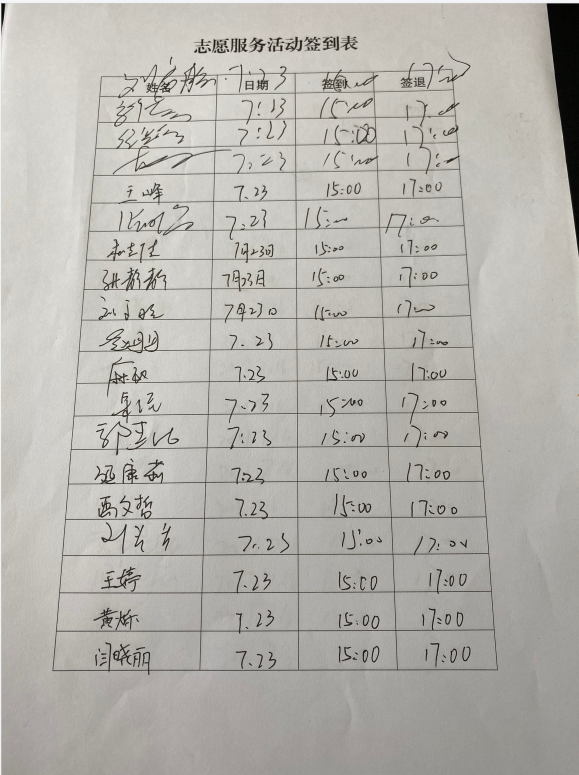 志愿服务活动签到表
姓名 日期 签到 签退
7.23 15:00 17:00
7:23 15:00 17:00
7:23 15:00 17:00
7.23 15:00 17:00
王峰 7.23 15:00 17:00
7.23 15:00 17:00
7月23日 15:00 17:00
张静静 7月23日 15:00 17:00
7月23日 15:00 17:00
7.23 15:00 17:00
7.23 15:00 17:00
7.23 15:00 17:00
7:23 15:00 17:00
康 7.23 15:00 17:00
文哲 7.23 15:00 17:00
7.23 15:00 17:00
王婷 7.23 15:00 17:00
黄烁 7.23 15:00 17:00
闫晓丽 7.23 15:00 17:00